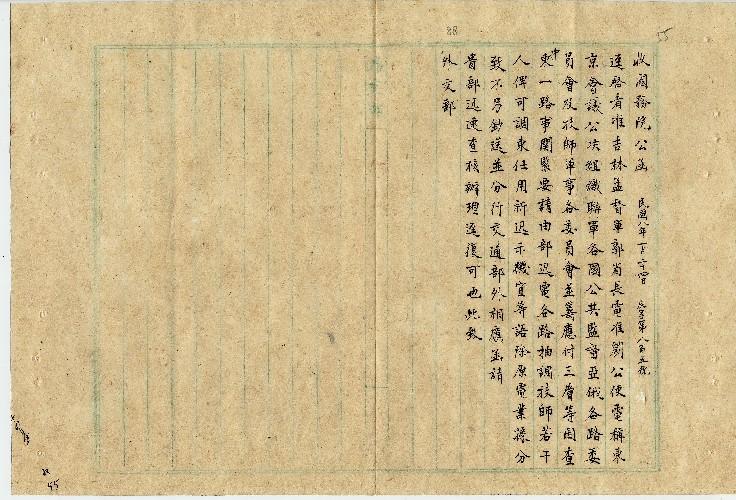 55
88
收國務院公函 民國八年 月二十四日 字第八百五號
逕啓者准吉林孟督軍郭省長電准劉公使電稱東
京會議公決組織聯軍各國公共監管亞俄各路委
員會及技師軍事各委員會並籌應付三層等因查
中東一路事關緊要請由部迅電各路抽調技師若干
人俾可調東任用祈迅示機宜等語除原電業經分
致不另鈔送並分行交通部外相應函請
貴部迅速查核辦理逕復可也此致
外交部
55